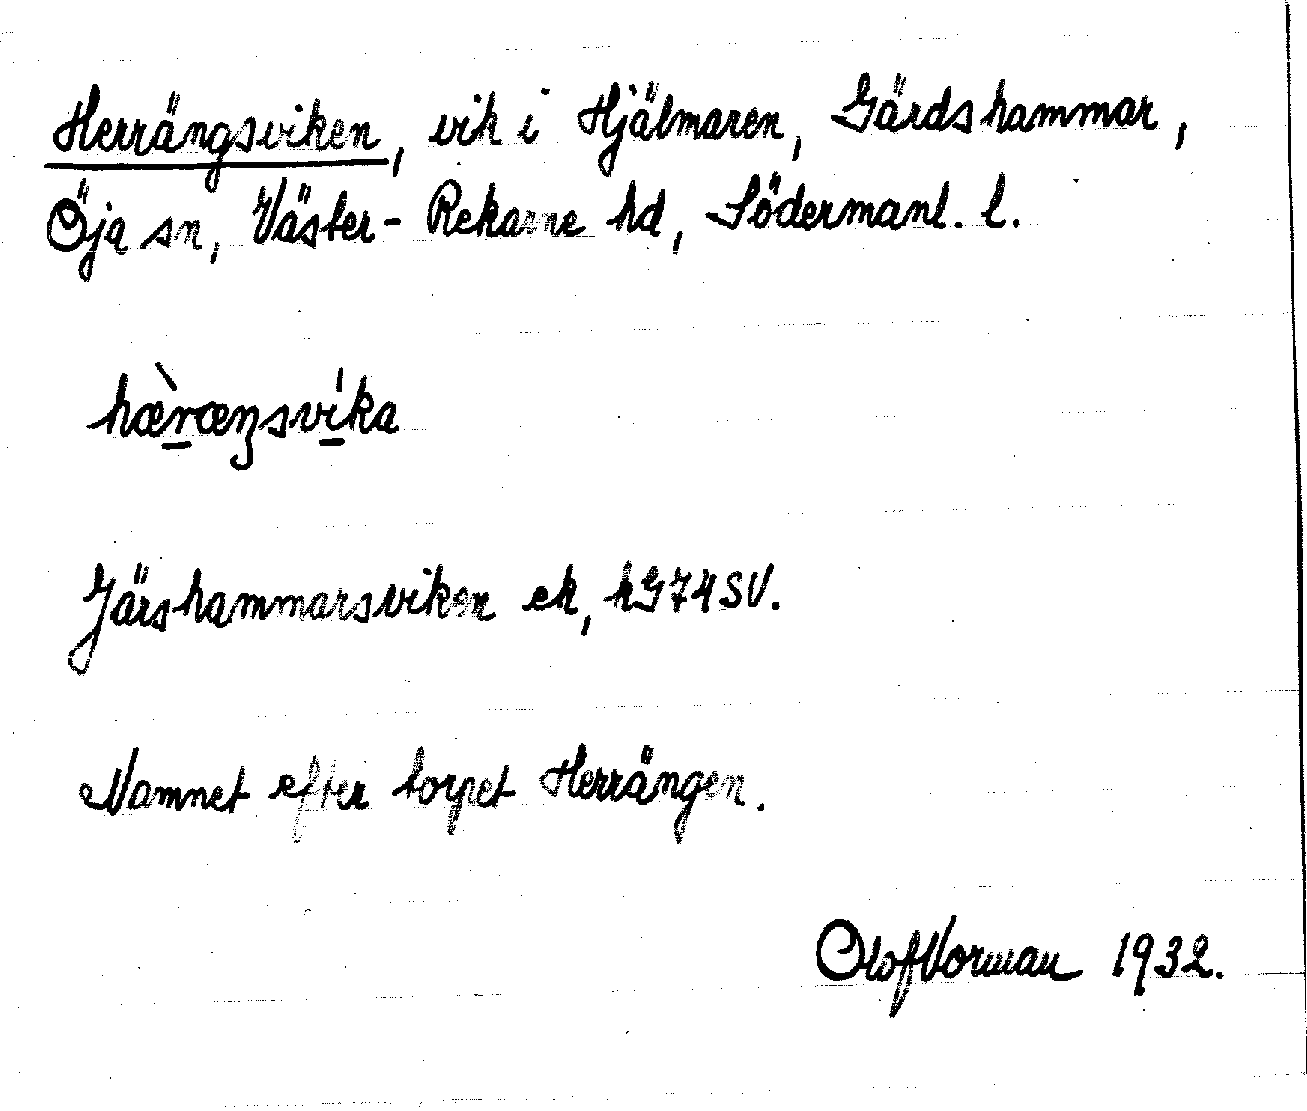 Herrängsviken, vik i Hjälmaren, Gärdshammar,
Öja sn, Väster-Rekarne hd, Södermanl. l.
hæ̀ræŋsvíka
Järshammarsviken ek, hG74SV.
Namnet efter torpet Herrängen.
Olof Norman 1932.